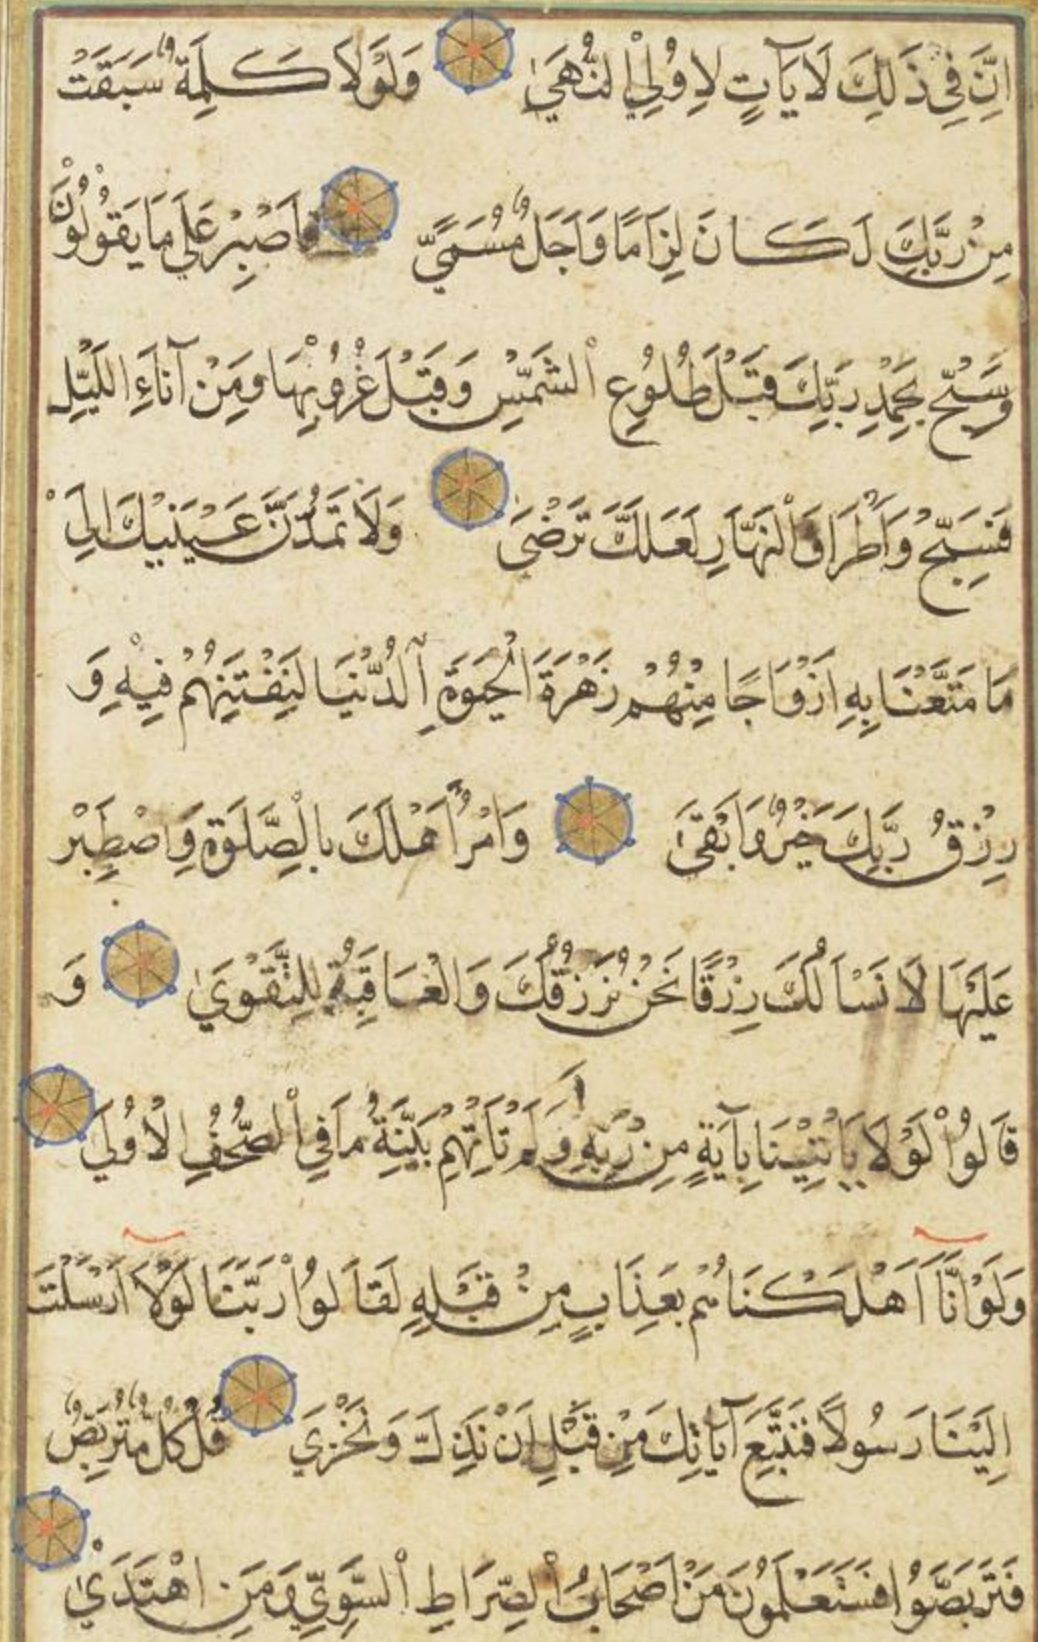 اِنَّ فِي ذَلِكَ لَآيَاتٍ لِاُولِي النُّهَى وَلَوْلَا كَلِمَةٌ سَبَقَتْ
مِنْ رَبِّكَ لَكَانَ لِزَامًا وَاَجَلٌ مُسَمًّى فَاصْبِرْ عَلَى مَا يَقُولُونَ
وَسَبِّحْ بِحَمْدِ رَبِّكَ قَبْلَ طُلُوعِ الشَّمْسِ وَقَبْلَ غُرُوبِهَا وَمِنْ آنَاءِ اللَّيْلِ
فَسَبِّحْ وَاَطْرَافَ النَّهَارِ لَعَلَّكَ تَرْضَى وَلَا تَمُدَّنَّ عَيْنَيْكَ اِلَى
مَا مَتَّعْنَا بِهِ اَزْوَاجًا مِنْهُمْ زَهْرَةَ الْحَيَوةِ الدُّنْيَا لِنَفْتِنَهُمْ فِيهِ وَ
رِزْقُ رَبِّكَ خَيْرٌ وَاَبْقَى وَاْمُرْ اَهْلَكَ بِالصَّلَوةِ وَاصْطَبِرْ
عَلَيْهَا لَا نَسْاَلُكَ رِزْقًا نَحْنُ نَرْزُقُكَ وَالْعَاقِبَةُ لِلتَّقْوَى وَ
قَالُوا لَوْلَا يَاْتِينَا بِآيَةٍ مِنْ رَبِّهِ اَوَلَمْ تَاْتِهِمْ بَيِّنَةُ مَا فِي الصُّحُفِ الْاُولَى
وَلَوْ اَنَّا اَهْلَكْنَاهُمْ بِعَذَابٍ مِنْ قَبْلِهِ لَقَالُوا رَبَّنَا لَوْلَا اَرْسَلْتَ
اِلَيْنَا رَسُولًا فَنَتَّبِعَ آيَاتِكَ مِنْ قَبْلِ اَنْ نَذِلَّ وَنَخْزَى قُلْ كُلٌّ مُتَرَبِّصٌ
فَتَرَبَّصُوا فَسَتَعْلَمُونَ مَنْ اَصْحَابُ الصِّرَاطِ السَّوِيِّ وَمَنِ اهْتَدَى